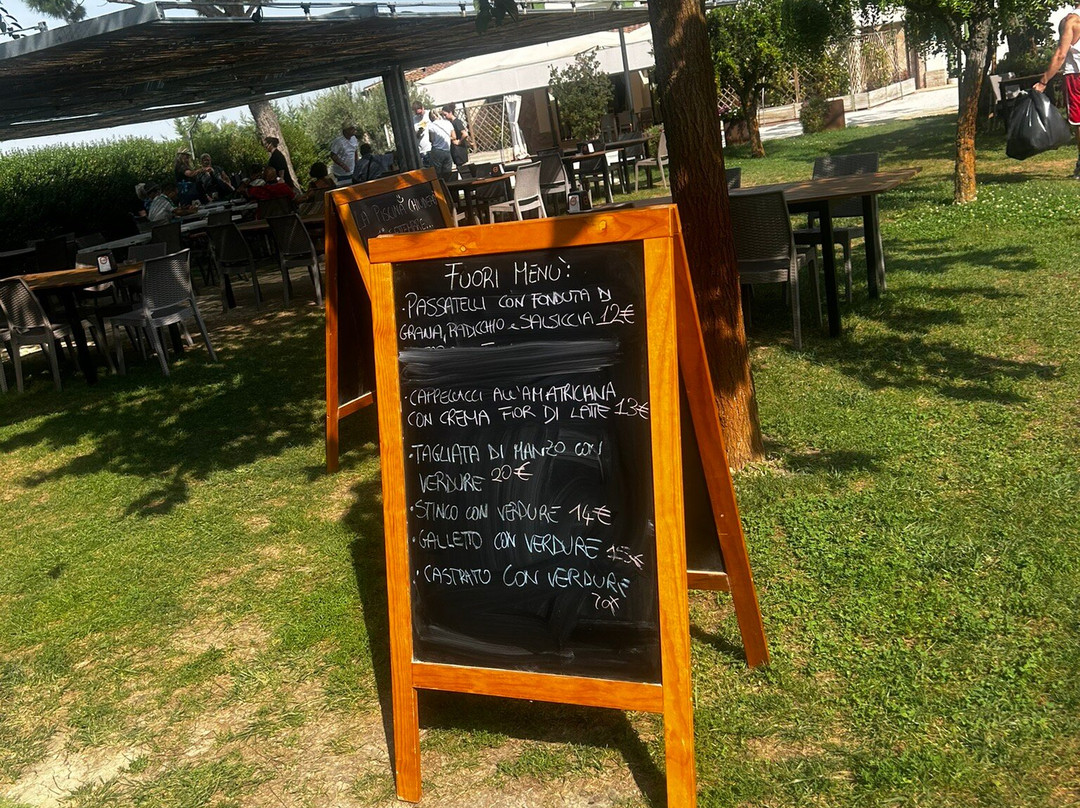 LA PISCINA CHIUDERÀ
FUORI MENÙ:
• PASSATELLI CON FONDUTA DI
GRANA, RADICCHIO e SALSICCIA 12€
• CAPPELLACCI ALL'AMATRICIANA
CON CREMA FIOR DI LATTE 13€
• TAGLIATA DI MANZO CON
VERDURE 20€
• STINCO CON VERDURE 14€
• GALLETTO CON VERDURE 15€
• CASTRATO CON VERDURE
20€